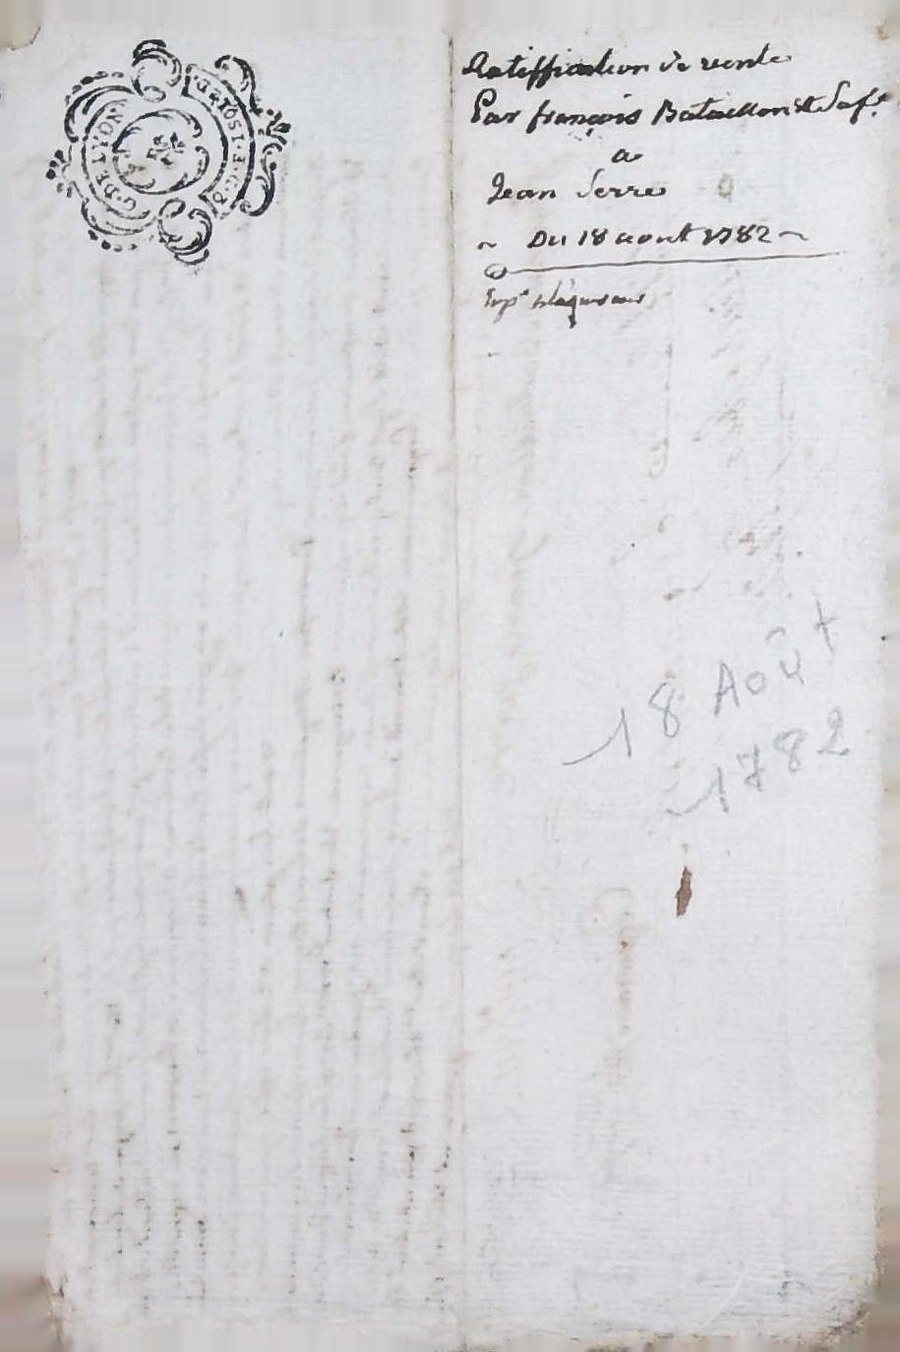 G. DE LYON
Ratiffication de vente
Par françois Bataillon & Saf.e
a
Jean Serre
~ Du 18 aout 1782 ~
Exp.e
18 Août
1782